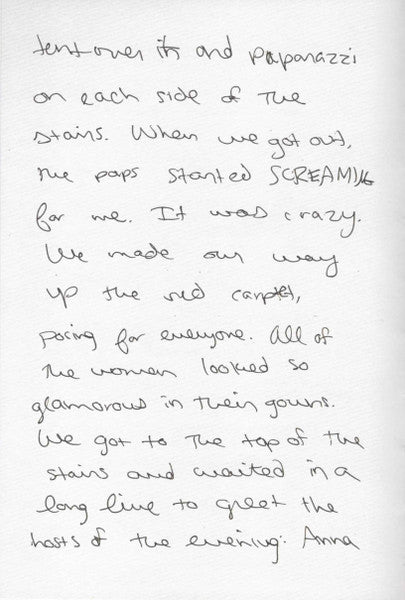 tent over it and paparazzi
on each side of the
stairs. When we got out,
the paps started SCREAMING
for me. It was crazy.
We made our way
up the red carpet,
posing for everyone. All of
the women looked so
glamorous in their gowns.
We got to the top of the
stairs and waited in a
long line to greet the
hosts of the evening: Anna